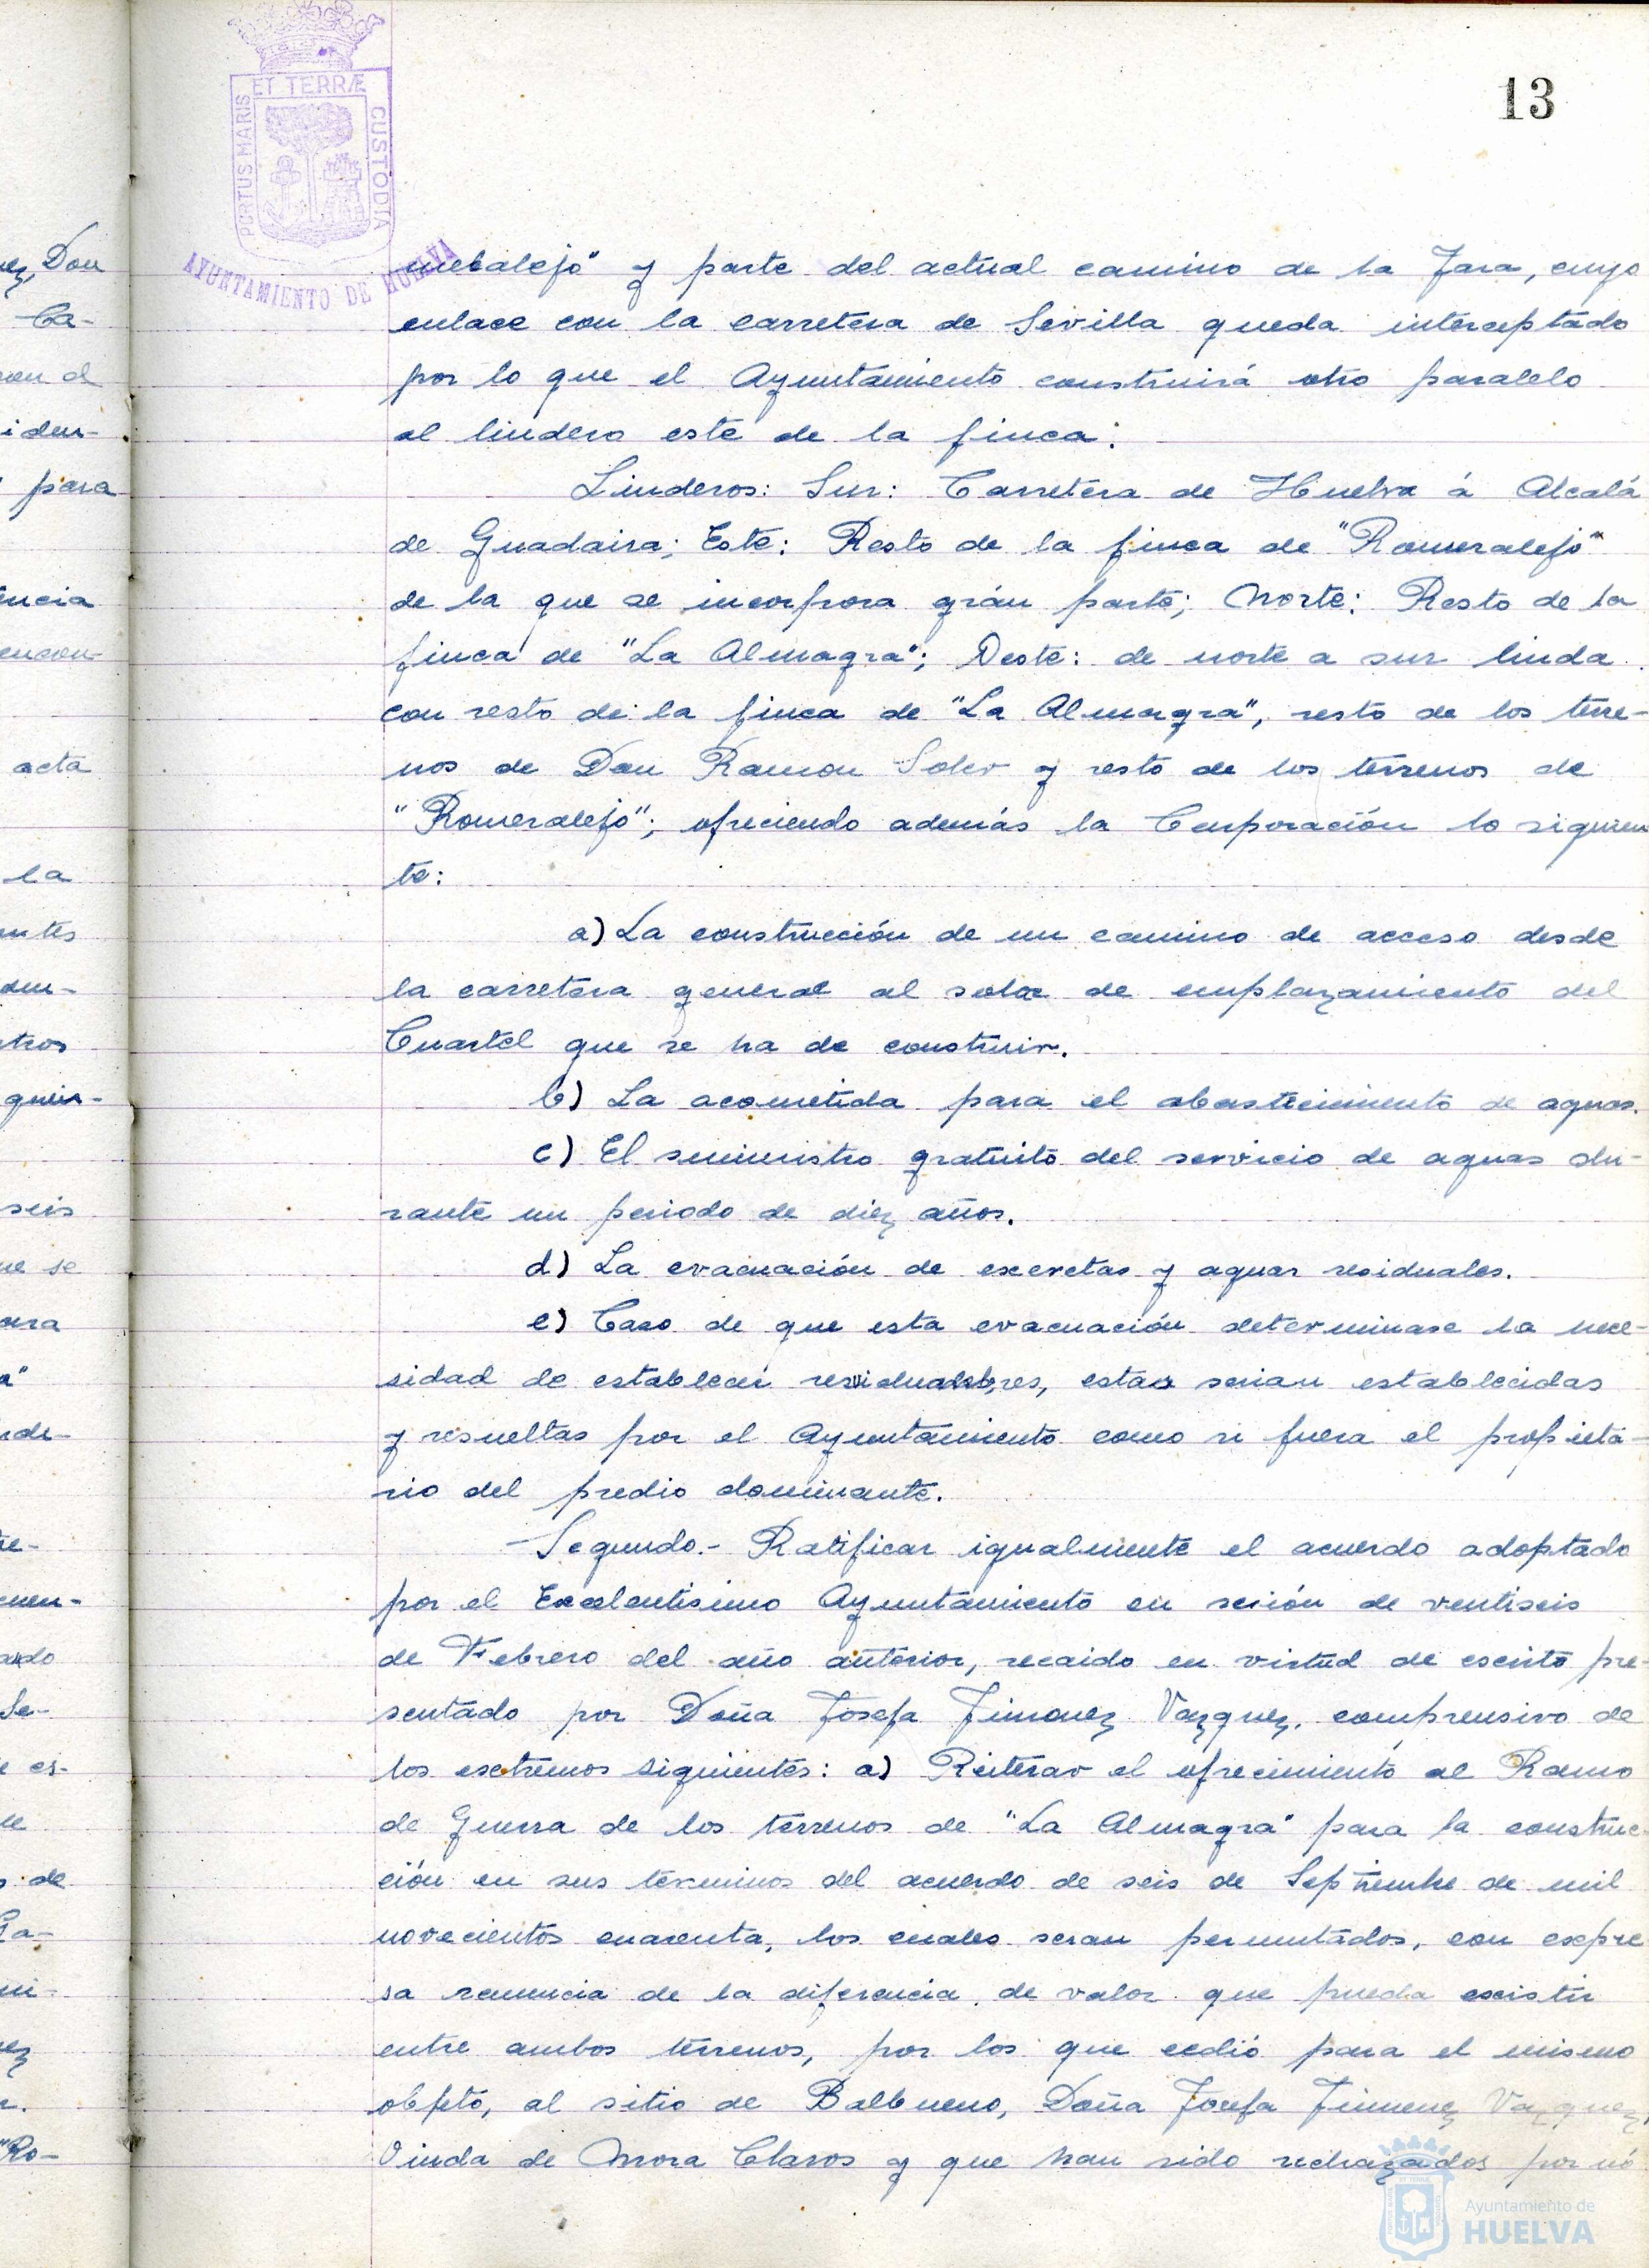 13
PORTUS MARIS ET TERRÆ CUSTODIA
AYUNTAMIENTO DE HUELVA
meralejo" y parte del actual camino de la Jara, cuyo
enlace con la carretera de Sevilla queda interceptado
por lo que el Ayuntamiento construirá otro paralelo
al lindero este de la finca:
Linderos: Sur: Carretera de Huelva á Alcalá
de Guadaira; Este: Resto de la finca de "Romeralejo"
de la que se incorpora grán parte; Norte: Resto de la
finca de "La Almagra"; Oeste: de norte a sur linda
con resto de la finca de "La Almagra", resto de los terre-
nos de Don Ramon Soler y resto de los terrenos de
"Romeralejo"; ofreciendo además la Corporación lo siguien
te:
a) La construcción de un camino de acceso desde
la carretera general al solar de emplazamiento del
Cuartel que se ha de construir.
b) La acometida para el abastecimiento de aguas.
c) El suministro gratuito del servicio de aguas du-
rante un periodo de diez años.
d) La evacuación de excretas y aguas residuales.
e) Caso de que esta evacuación determinase la nece-
sidad de establecer estas serian establecidas
y resueltas por el Ayuntamiento como si fuera el propieta-
rio del predio dominante.
Segundo.- Ratificar igualmente el acuerdo adoptado
por el Excelentisimo Ayuntamiento en sesión de ventiseis
de Febrero del año anterior, recaido en virtud de escrito pre-
sentado por Doña Josefa Jimenez Vazquez, comprensivo de
los extremos siguientes: a) Reiterar el ofrecimiento al Ramo
de Guerra de los terrenos de "La Almagra" para la construc-
ción en sus terminos del acuerdo de seis de Septiembre de mil
novecientos cuarenta, los cuales seran permutados, con expre
sa renuncia de la diferencia de valor que pueda existir
entre ambos terrenos, por los que cedió para el mismo
objeto, al sitio de Balbueno, Doña Josefa Jimenez Vazquez,
Viuda de Mora Claros y que han sido rechazados por nó
uez, Don
Ca-
con el
iden-
para
encia
encon-
acta
la
antes
den-
otros
quin-
seis
ue se
"
nde-
ado
Se-
e es-
s de
mi-
ez
"Ro-
Ayuntamiento de
HUELVA